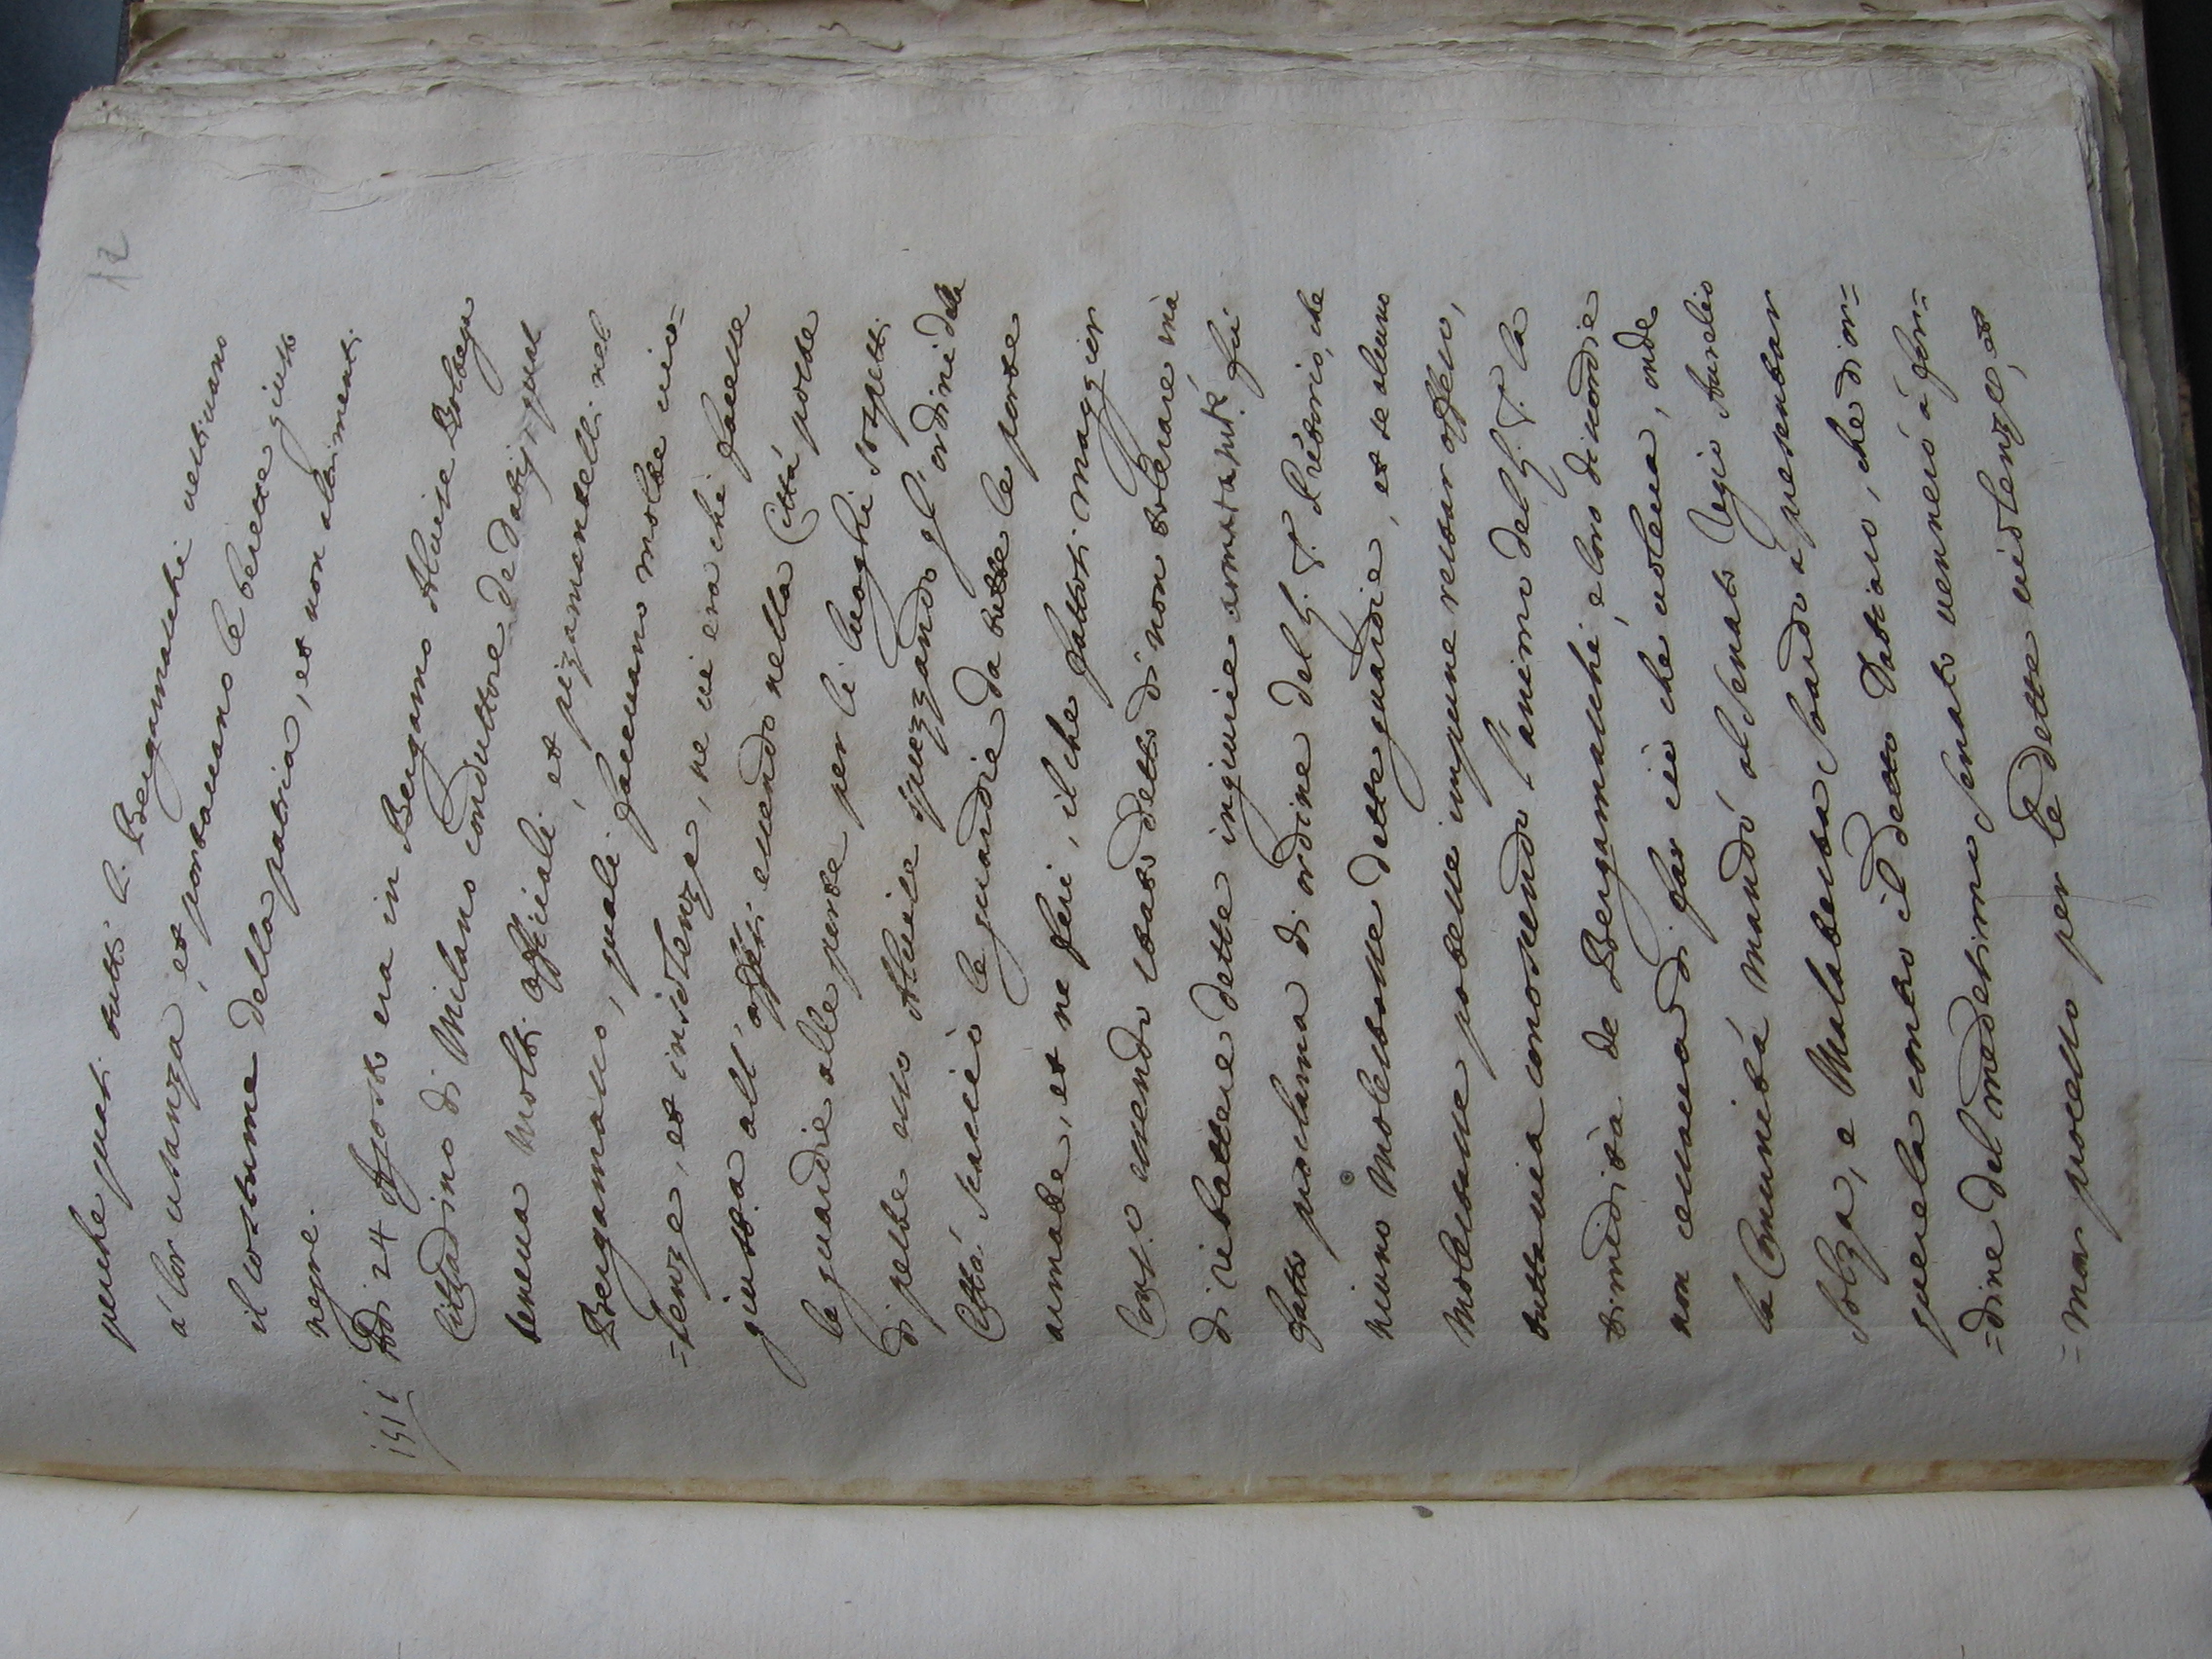 12
perche quasi tutti li Bergamaschi vestivano
á lor usanza, et portavano le berette giusto
il costume della patria, et non altrimenti
negre.
1511 Adi 24 Agosto era in Bergamo Aluise Bottega
Cittadino di Milano conduttore de datij, qual
teneva molti offitiali, et pizamantelli nel
Bergamasco, quali facevano molte vio=
=lenze, et insolenze, ne vi era chi facesse
giustitia all' offesi essendo nella Cittá poste
le guardie alle porte per li luoghi sospetti
di peste esso Aluise sprezzando gl' ordini della
Cittá scacciò le guardie da tutte le porte
armate, et ne ferì, il che fattosi maggior
Conso essendo stato detto di non tolerare mà
di ribattere dette ingiurie fú
fatto proclama di ordine del G. T. Pretorio, che
niuno molestasse dette guardie, et se alcuno
molestasse potesse impune restar offeso,
tuttavia conoscendo l'animo del G. T. la
timidità de Bergamaschi, e loro discordie
non cessava di far ciò che voleva, onde
la Comunitá mandó al Senato Regio Aurelio
Solza, e Malatesta Suardo á presentar
querela contro il detto Datiaro, che di or=
=dine del medesimo Senato venneró á for=
=mar processo per le dette violenze, et